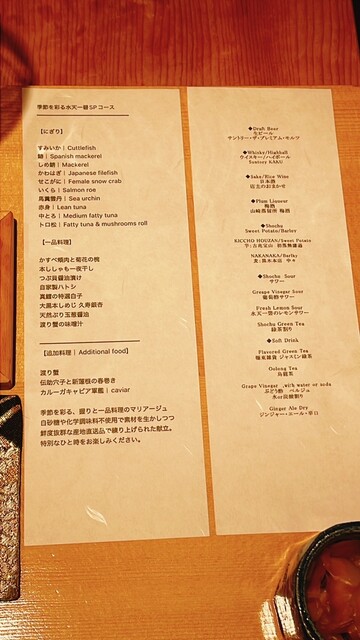 季節を彩る水天一碧SPコース
【にぎり】
すみいか | Cuttlefish
鯖 | Spanish mackerel
しめ鯖 | Mackerel
かわはぎ | Japanese filefish
せこがに | Female snow crab
いくら | Salmon roe
馬糞雲丹 | Sea urchin
赤身 | Lean tuna
中とろ | Medium fatty tuna
トロ松 | Fatty tuna & mushrooms roll
【一品料理】
かすべ頬肉と菊花の椀
本ししゃも一夜干し
つぶ貝醤油漬け
自家製ハトシ
真鱈の特選白子
大黒本しめじ 久寿銀杏
天然ぶり玉葱醤油
渡り蟹の味噌汁
【追加料理 | Additional food】
渡り蟹
伝助穴子と新蓮根の春巻き
カルーガキャビア軍艦 | caviar
季節を彩る、握りと一品料理のマリアージュ
白砂糖や化学調味料不使用で素材を生かしつつ
鮮度抜群な産地直送品で練り上げられた献立。
特別なひと時をお楽しみください。
◆Draft Beer
生ビール
サントリー・ザ・プレミアム・モルツ
◆Whisky/Highball
ウイスキー/ハイボール
Suntory KAKU
◆Sake/Rice Wine
日本酒
店主のおまかせ
◆Plum Liqueur
梅酒
山崎蒸留所 梅酒
◆Shochu
Sweet Potato/Barley
KICCHO HOUZAN/Sweet Potato
芋:吉兆宝山
NAKANAKA/Barley
麦:黒木本店 中々
◆Shochu Sour
サワー
Greape Vinegar Sour
葡萄酢サワー
Fresh Lemon Sour
水天一碧のレモンサワー
Shochu Green Tea
緑茶割り
◆Soft Drink
Flavored Green Tea
ジャスミン緑茶
Oolong Tea
烏龍茶
Grape Vinegar ,with water or soda
ぶどう酢 ベルジュ
水or炭酸割り
Ginger Ale Dry
ジンジャー・エール・辛口